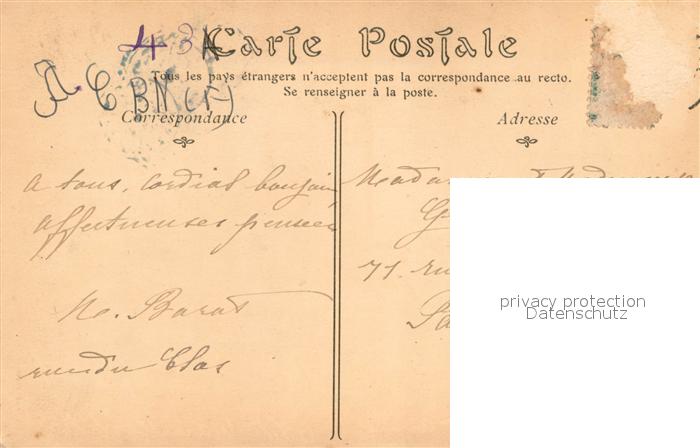 43
Carte Postale
A. C BN (r)
Tous les pays étrangers n'acceptent pas la correspondance au recto.
Se renseigner à la poste.
Correspondance
Adresse
a tous, cordial bonjour
affectueuses pensées
Barat
rue du Clos
71, rue
privacy protection
Datenschutz